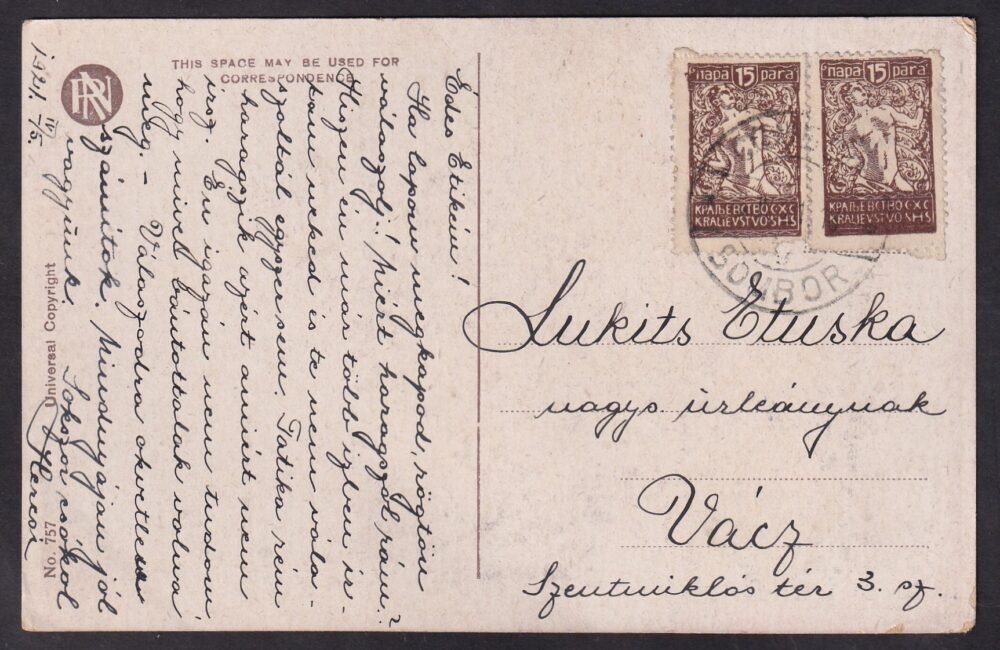 1921. IV/5.
THIS SPACE MAY BE USED FOR
CORRESPONDENCE
Édes Etikém!
Ha lapom megkapod, rögtön
válaszolj! Miért haragszol reám?
Hiszen én már több izben ir-
tam neked is te nem vála-
szoltál egyszersem. Tatika rém
haragszik azért amiért nem
irsz. Én igazán nem tudom
hogy mivel bántottalak volna
meg. - Válaszodra okvetlen
számitok. Mindnyájan jól
vagyunk. Sokszor csókol
Hercsi
No. 757 Universal Copyright
пара 15 para
КРАЉЕВСТВО СХС
KRALJEVSTVO SHS
пара 15 para
КРАЉЕВСТВО СХС
KRALJEVSTVO SHS
SOMBOR
Lukits Etuska
nagys. úrleánynak
Vácz
Szentmiklós tér 3. sz.